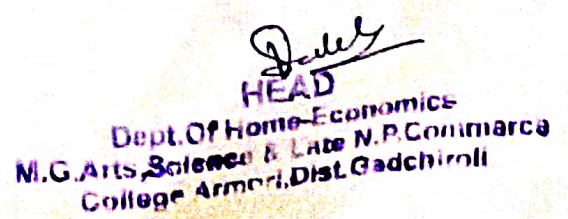 HEAD
Dept.Of Home-Economics
M.G.Arts,Science & Late N.P.Commarce
College Armori,Dist.Gadchiroli